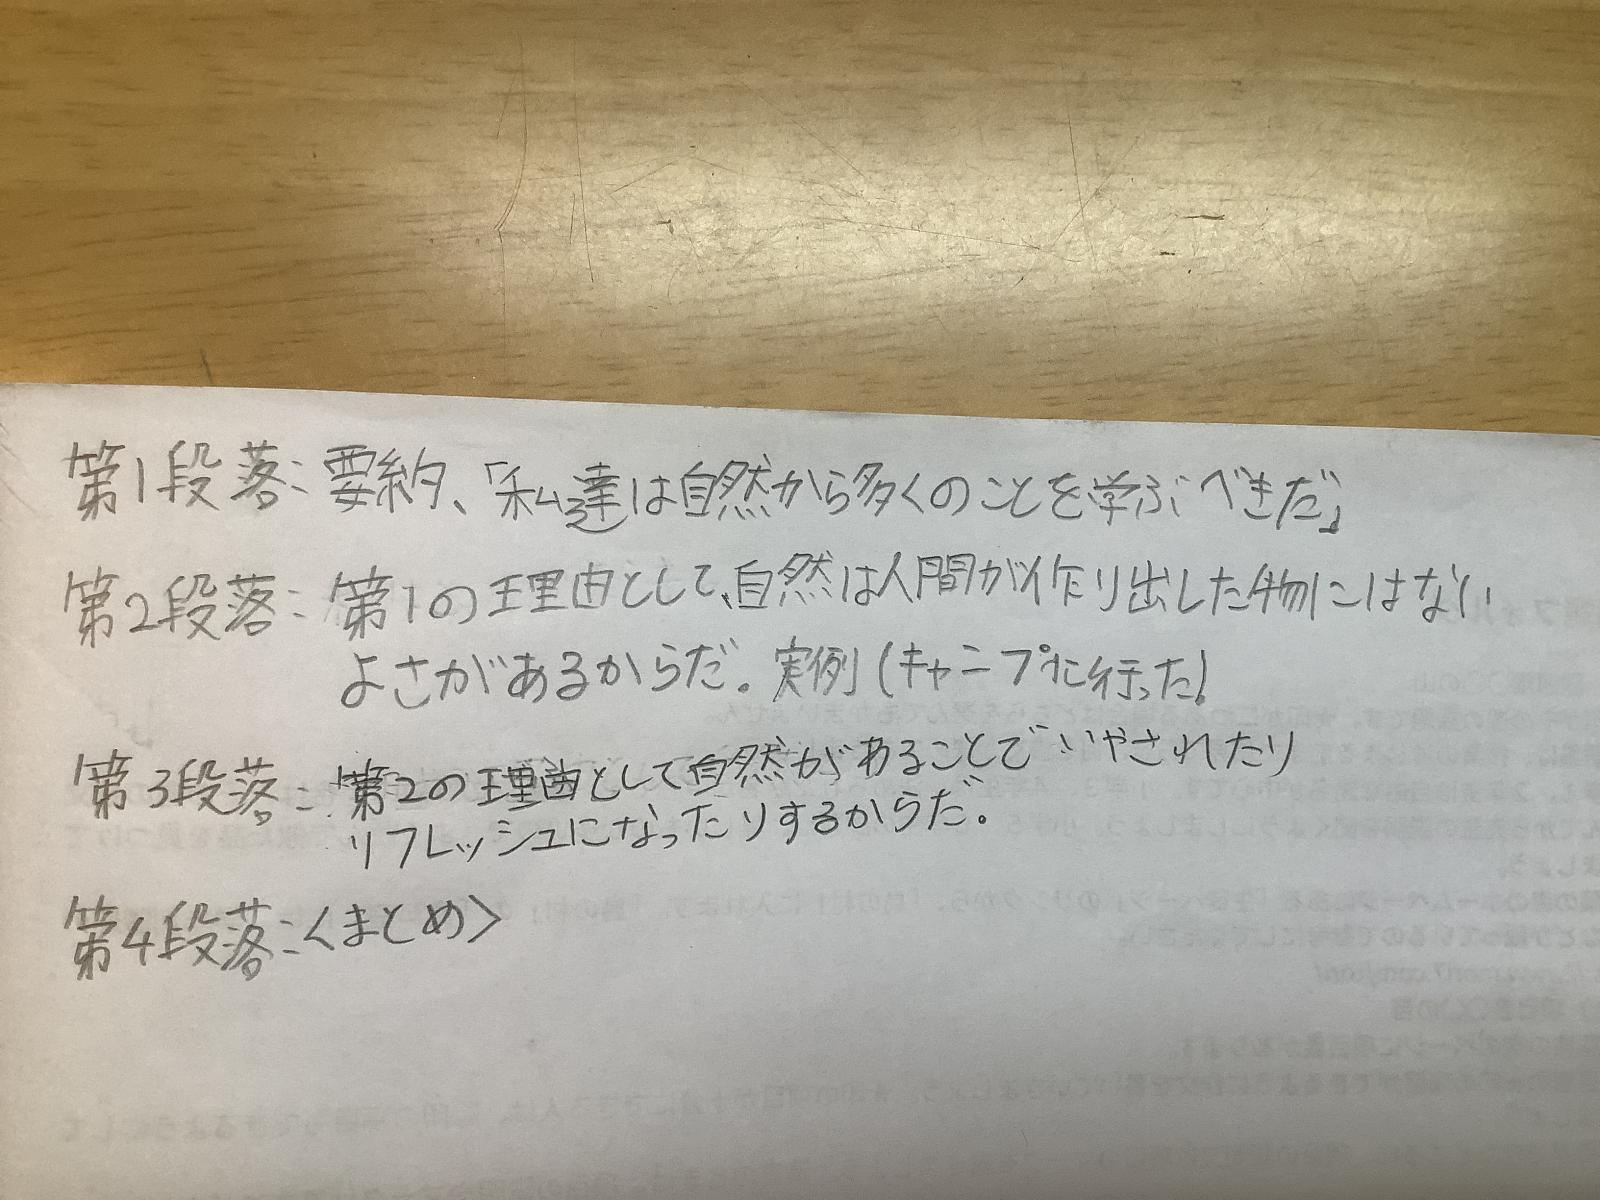 第1段落：要約、「私達は自然から多くのことを学ぶべきだ」
第2段落：第1の理由として、自然は人間が作り出した物にはない
よさがあるからだ。実例(キャンプに行った)
第3段落：第2の理由として自然があることでいやされたり
リフレッシュになったりするからだ。
第4段落：<まとめ>